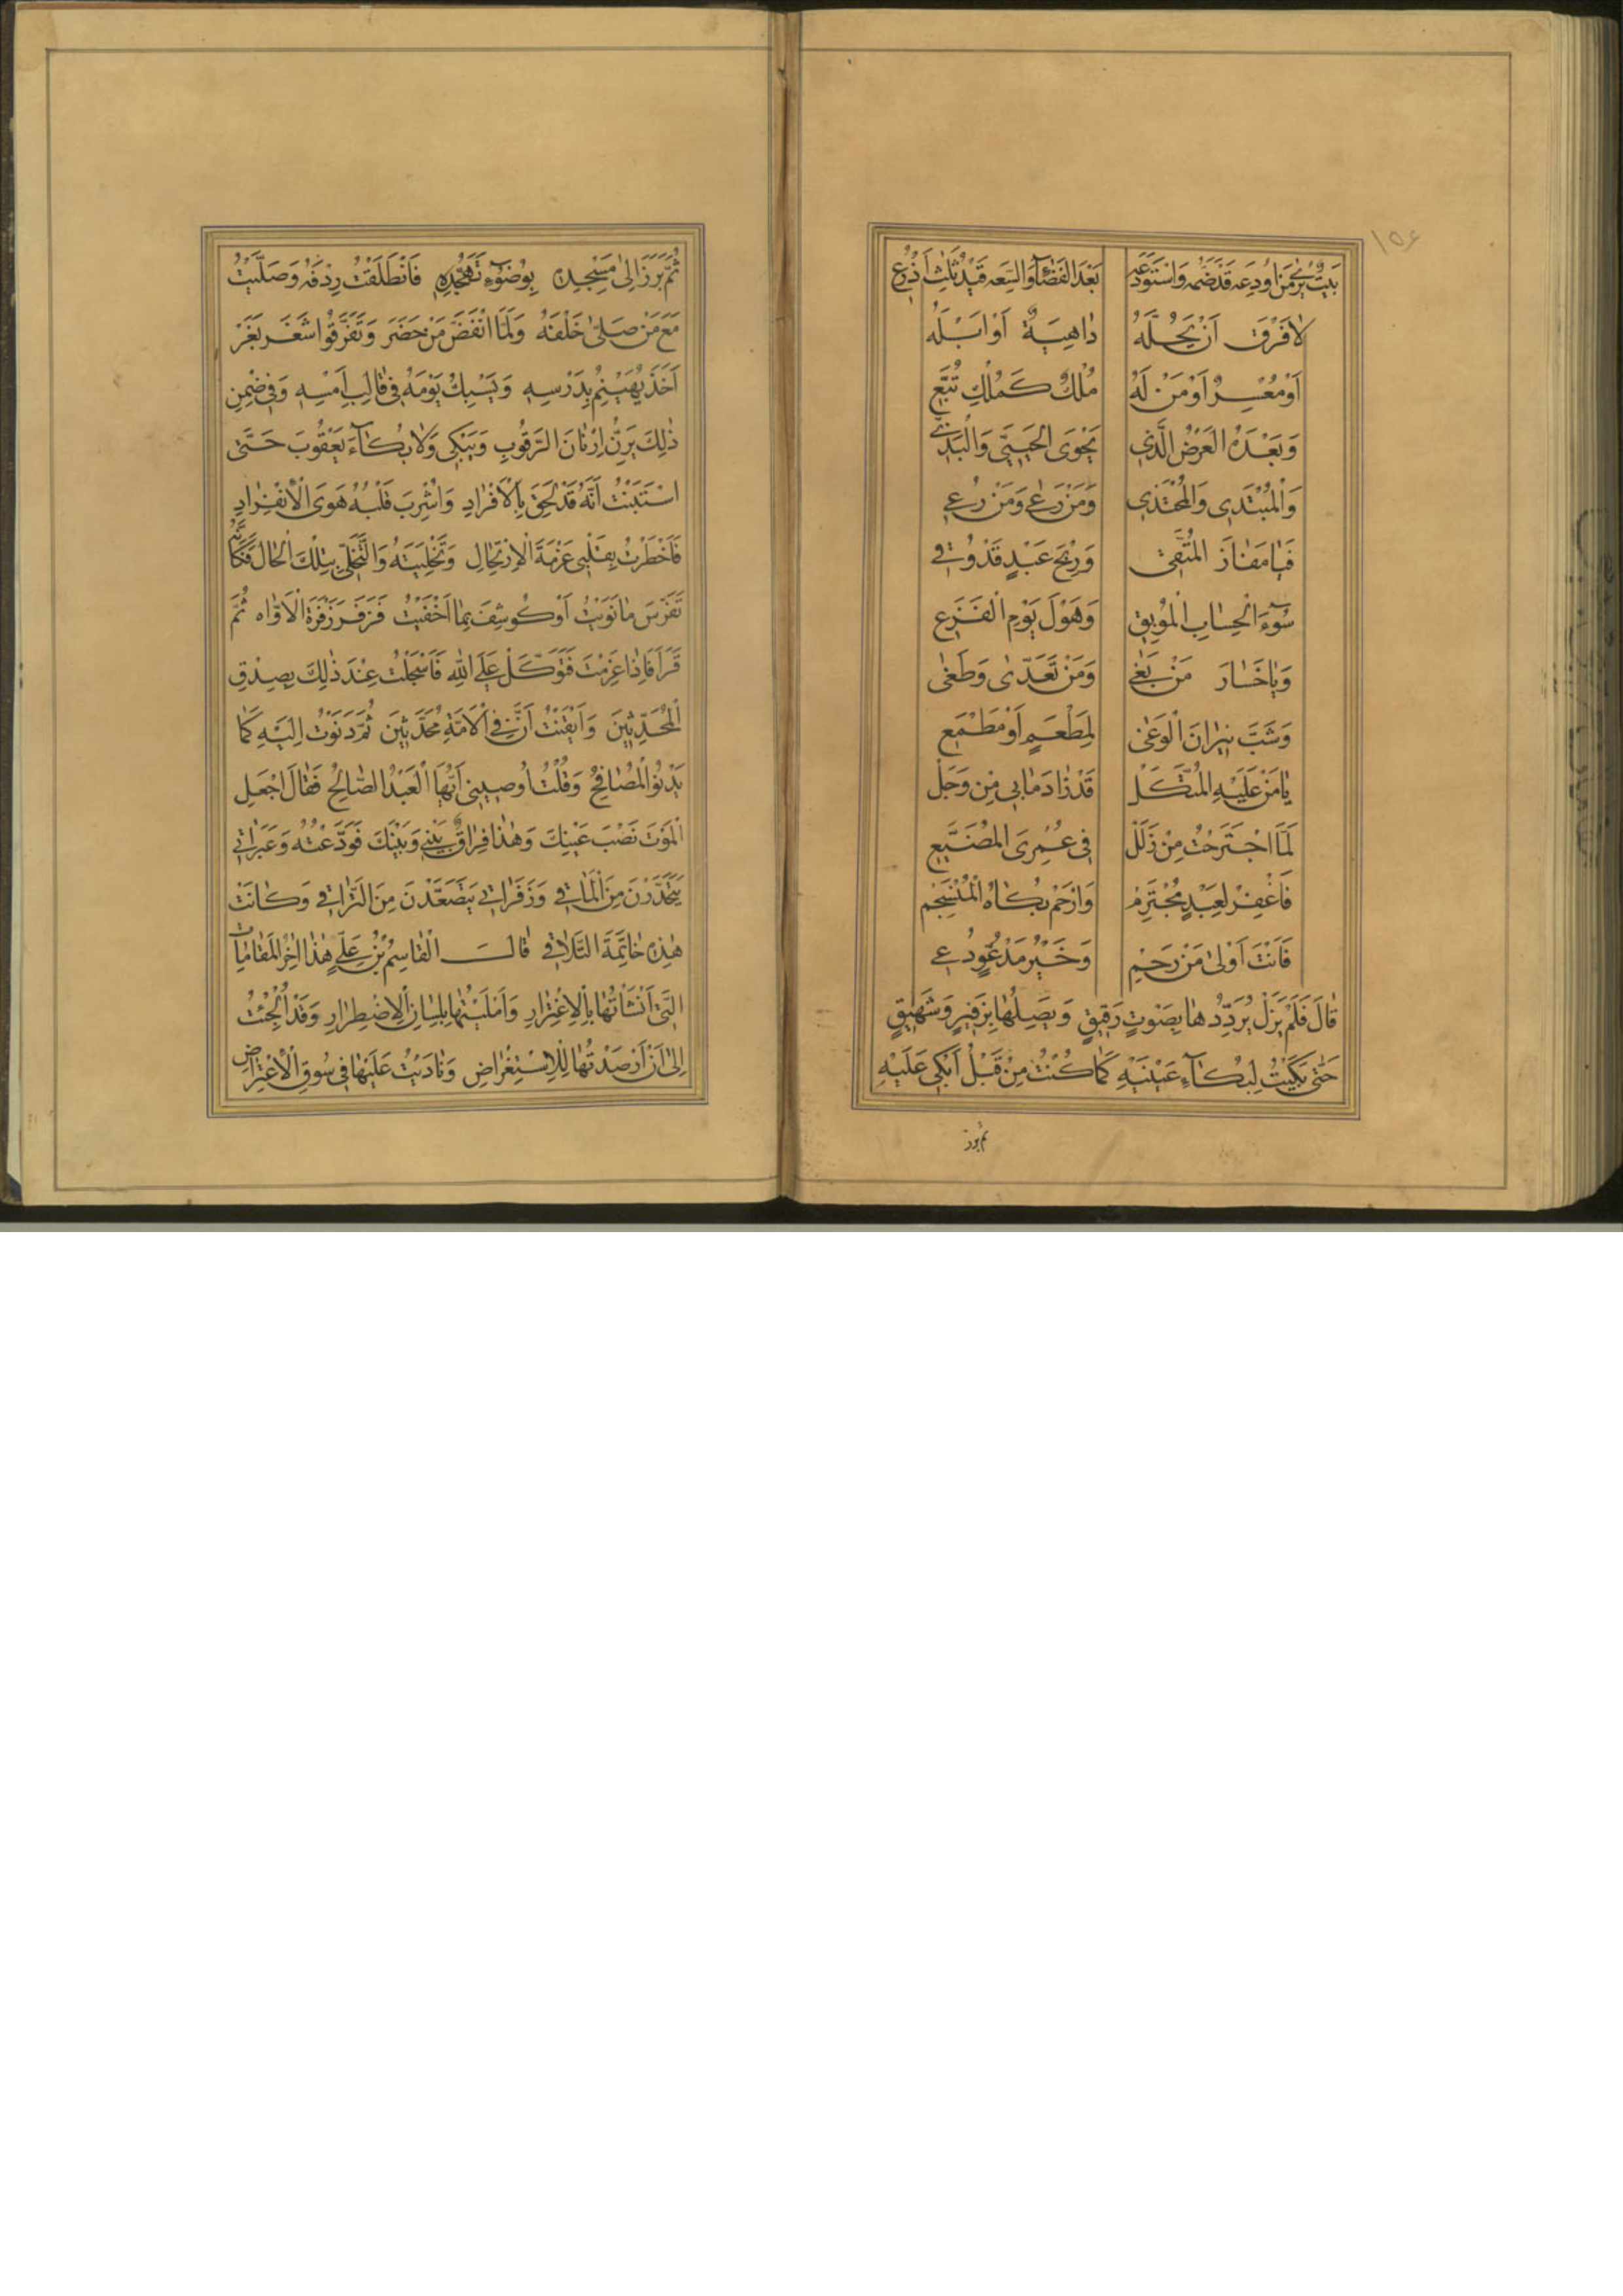 ١٥٤
بَيْتٌ يُرٰى مَنْ اُودِعَه قَدْ ضَمَّه وَاسْتَوْدَعَه بَعْدَ الفَضَآءِ وَالسَّعَه قَيْدَ ثَلٰثِ اَذْرُعِ
لاٰ فَرْقَ اَنْ يَحُلَّهُ دٰاهِيَةٌ اَوْ اَبْلَهُ
اَوْ مُعْسِرٌ اَوْ مَنْ لَهُ مُلْكٌ كَمُلْكِ تُبَّعِ
وَبَعْدَهُ العَرْضُ الَّذِي يَحْوِى الحَيِيَّ وَالْبَذِي
وَالْمُبْتَدِى وَالْمُحْتَذِي وَمَنْ رَعٰى وَمَنْ رُعِي
فَيٰا مَفٰازَ المُتَّقِى وَرِبْحَ عَبْدٍ قَدْ وُقِي
سُوٓءَ الْحِسٰابِ الْمُوبِقِ وَهَوْلَ يَوْمِ الْفَزَعِ
وَيٰا خَسٰارَ مَنْ بَغٰى وَمَنْ تَعَدّٰى وَطَغٰى
وَشَبَّ نِيرٰانَ الْوَغٰى لِمَطْعَمٍ اَوْ مَطْمَعِ
يٰا مَنْ عَلَيْهِ المُتَّكَلْ قَدْ زٰادَ مٰا بِي مِنْ وَجَلْ
لِمَا اجْتَرَحْتُ مِنْ زَلَلْ فِي عُمْرِيَ المُضَيَّعِ
فَاغْفِرْ لِعَبْدٍ مُجْتَرِمْ وَارْحَمْ بُكٰاهُ الْمُنْسَجِمْ
فَاَنْتَ اَوْلىٰ مَنْ رَحِمْ وَخَيْرُ مَدْعُوٍّ دُعِي
قٰالَ فَلَمْ يَزَلْ يُرَدِّدُهٰا بِصَوْتٍ رَقِيقٍ وَيَصِلُهٰا بِزَفِيرٍ وَشَهِيقٍ
حَتّٰى بَكَيْتُ لِبُكٰآءِ عَيْنَيْهِ كَمٰا كُنْتُ مِنْ قَبْلُ اَبْكِي عَلَيْهِ
ثم برز
ثُمَّ بَرَزَ اِلىٰ مَسْجِدِهِ بِوُضُوٓءِ تَهَجُّدِهِ فَانْطَلَقْتُ رِدْفَهُ وَصَلَّيْتُ
مَعَ مَنْ صَلّىٰ خَلْفَهُ وَلَمَّا انْفَضَّ مَنْ حَضَرَ وَتَفَرَّقُوا شَغَرَ بَغَرَ
اَخَذَ يُهَيْنِمُ بِدَرْسِهِ وَيَسْبِكُ يَوْمَهُ فِي قٰالِبِ اَمْسِهِ وَفِي ضِمْنِ
ذٰلِكَ يَرِنُّ اِرْنٰانَ الرَّقُوبِ وَيَبْكِي وَلاٰ بُكٰآءَ يَعْقُوبَ حَتّٰى
اسْتَبَنْتُ اَنَّهُ قَدْ لَحِقَ بِالْاَفْرٰادِ وَاُشْرِبَ قَلْبُهُ هَوَى الْاِنْفِرٰادِ
فَاَخْطَرْتُ بِقَلْبِي عَزْمَةَ الْاِرْتِحٰالِ وَتَخْلِيَتَهُ وَالتَّخَلِّيَ بِتِلْكَ الْحٰالِ فَكَاَنَّهُ
تَفَرَّسَ مٰا نَوَيْتُ اَوْ كُوشِفَ بِمٰا اَخْفَيْتُ فَزَفَرَ زَفْرَةَ الْاَوّٰاهِ ثُمَّ
قَرَاَ فَاِذٰا عَزَمْتَ فَتَوَكَّلْ عَلَى اللهِ فَاَسْجَلْتُ عِنْدَ ذٰلِكَ بِصِدْقِ
الْمُحَدِّثِينَ وَاَيْقَنْتُ اَنَّ فِي الْاُمَّةِ مُحَدَّثِينَ ثُمَّ دَنَوْتُ اِلَيْهِ كَمٰا
يَدْنُو الْمُصٰافِحُ وَقُلْتُ اَوْصِينِي اَيُّهَا الْعَبْدُ الصّٰالِحُ فَقٰالَ اجْعَلِ
الْمَوْتَ نَصْبَ عَيْنِكَ وَهٰذٰا فِرٰاقُ بَيْنِي وَبَيْنَكَ فَوَدَّعْتُهُ وَعَبَرٰاتِي
يَتَحَدَّرْنَ مِنَ الْمَاٰقِي وَزَفَرٰاتِي يَتَصَعَّدْنَ مِنَ التَّرٰاقِي وَكٰانَتْ
هٰذِهِ خٰاتِمَةَ التَّلاٰقِي قٰالَ الْقٰاسِمُ بْنُ عَلِيٍّ هٰذٰا اٰخِرُ الْمَقٰامٰاتِ
الَّتِي اَنْشَأْتُهٰا بِالْاِغْتِرٰارِ وَاَمْلَيْتُهٰا بِلِسٰانِ الْاِضْطِرٰارِ وَقَدْ اُلْجِئْتُ
اِلىٰ اَنْ اَرْصَدْتُهٰا لِلْاِسْتِعْرٰاضِ وَنٰادَيْتُ عَلَيْهٰا فِي سُوقِ الْاِعْتِرٰاضِ